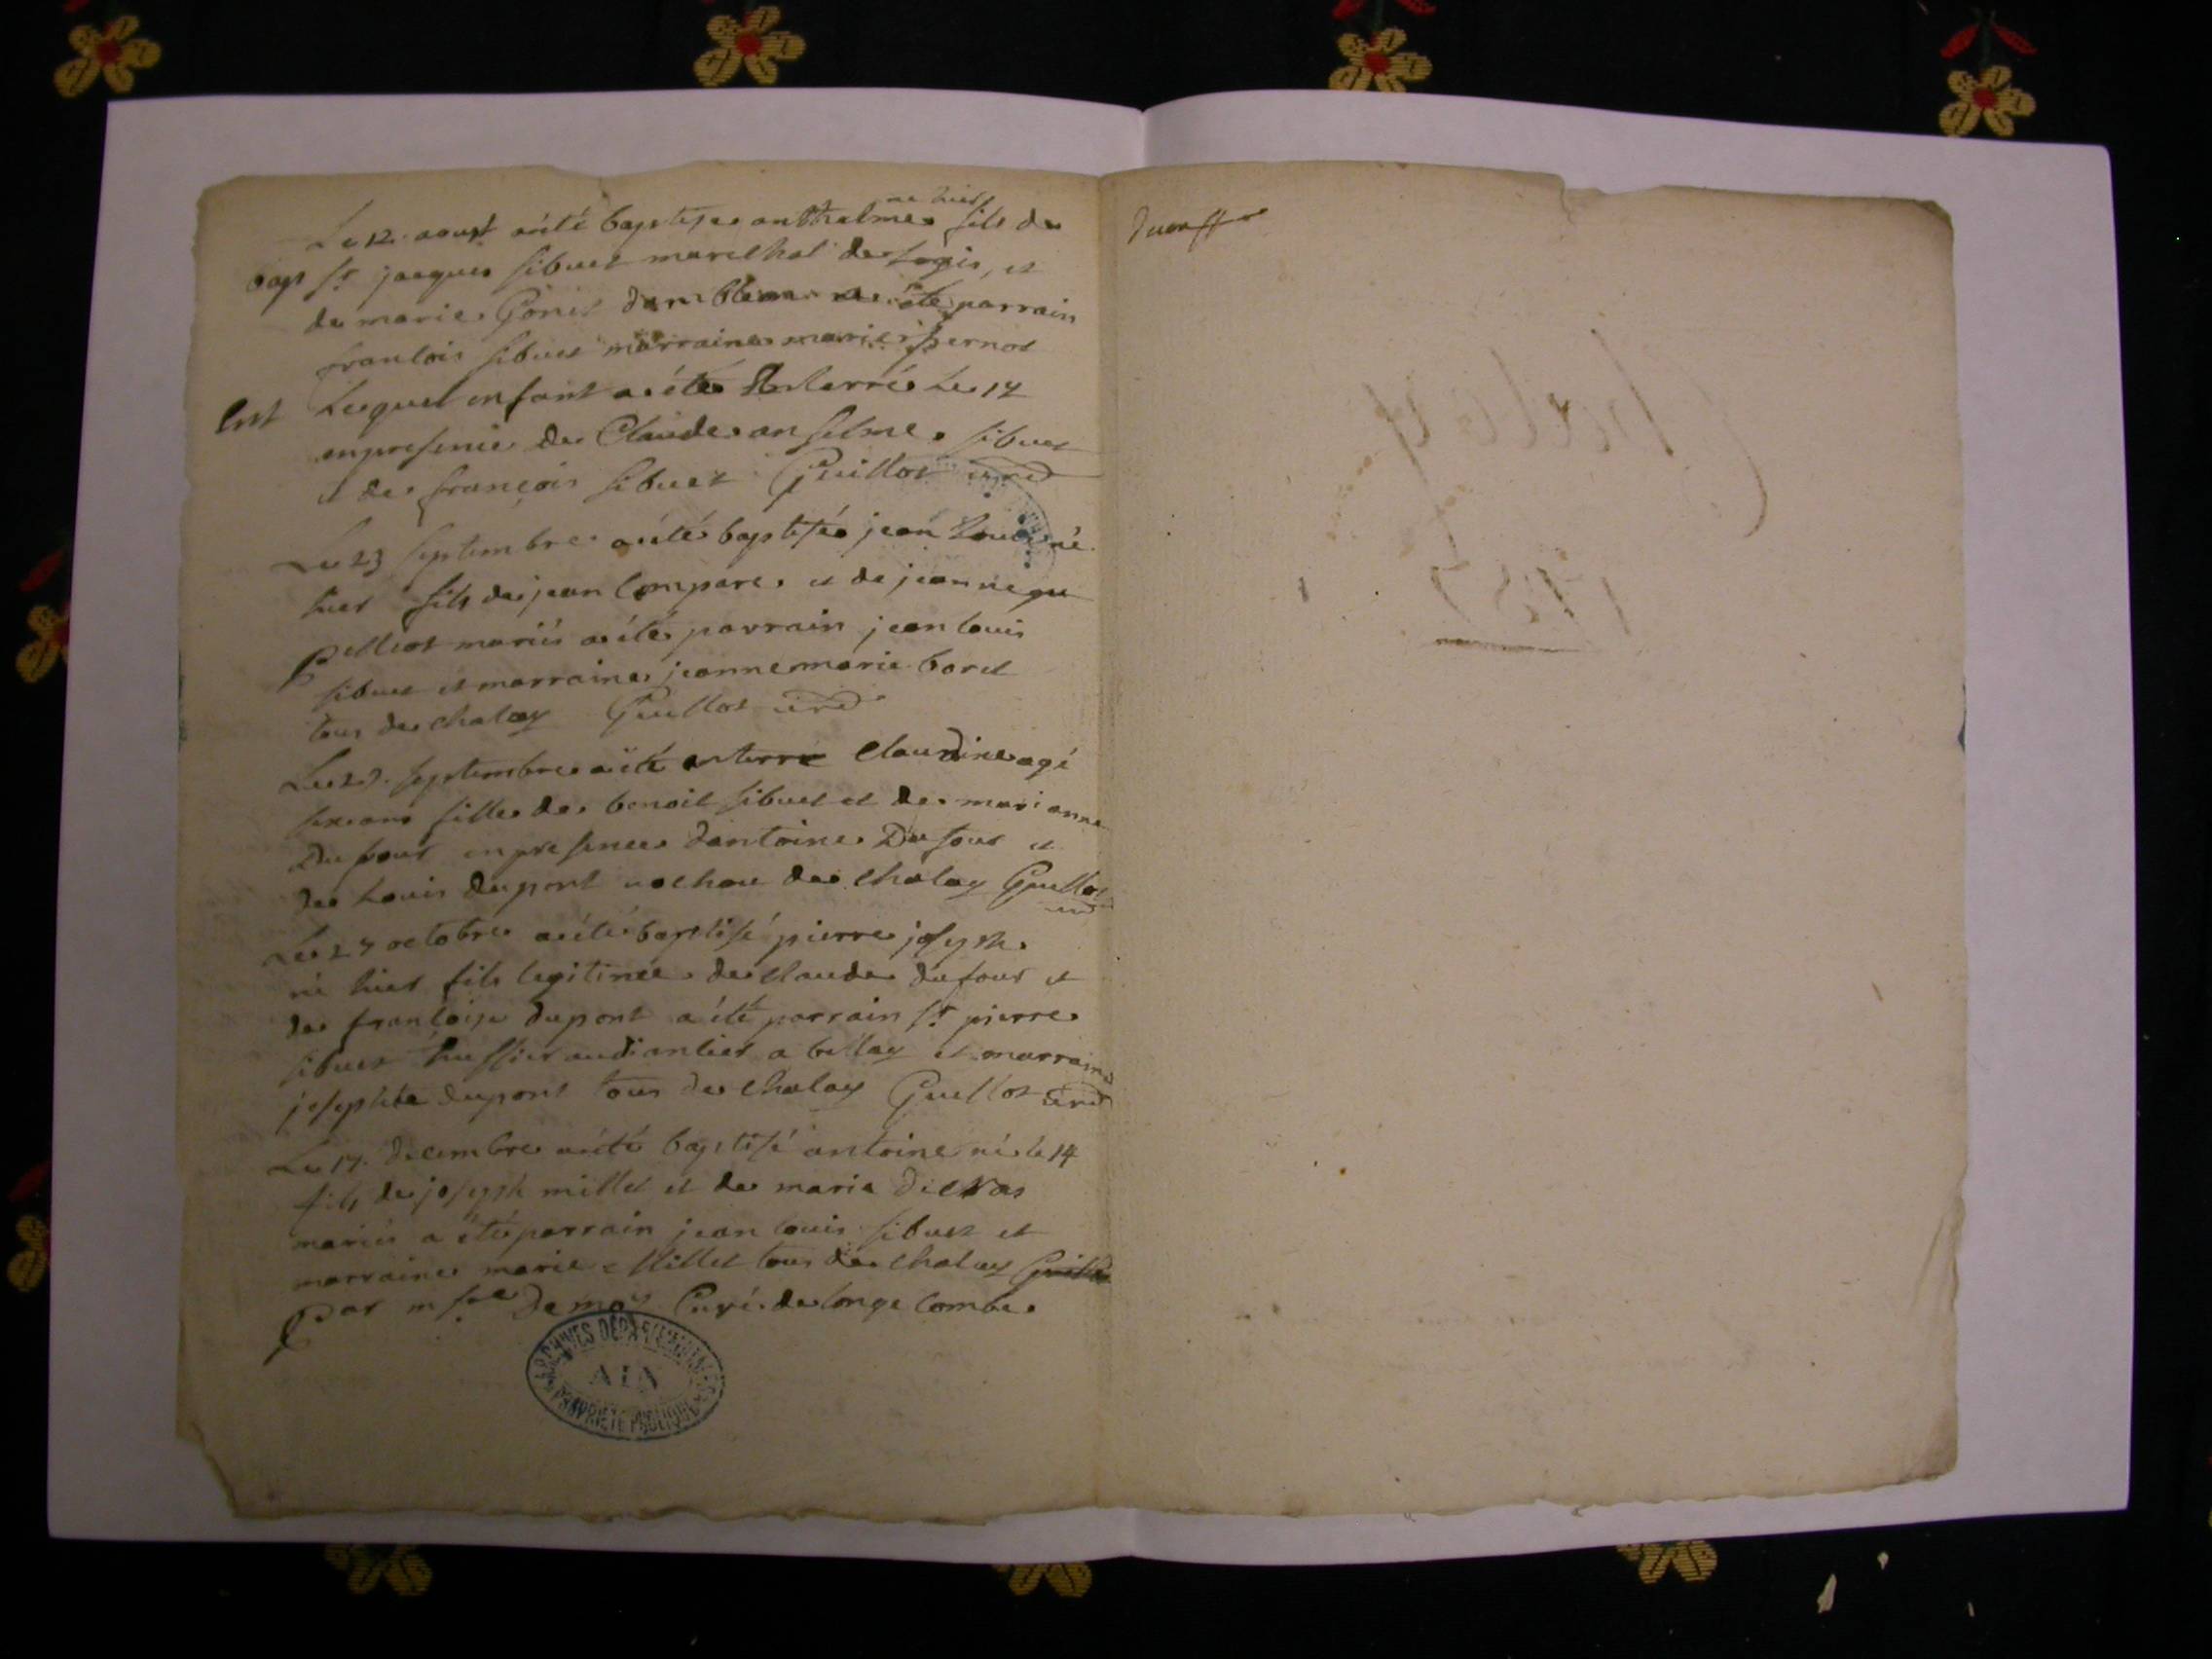 né hier
Le 12 aoust a été baptisé anthelme fils de
bap sr jaques sibuet marechal de logis, et
de marie Gonet d'ambleon a été parrain
francois sibuet marraine marie pernot
Ent Lequel enfant a été Enterré Le 17
en presence de Claude anselme sibuet
et de françois sibuet Guillot curé
Le 23 septembre a été baptisé jean Louis né
hier fils de jean Compare et de jeanne
pelliot mariés a été parrain jean louis
sibuet et marraine jeanne marie borel
tous de chaley Guillot curé
Le septembre a été enterré Claudine agé
six ans fille de benoit sibuet et de marianne
Dufour en presence d'antoine Dufour et
de Louis dupont de chaley Guillot
curé
Le 27 octobre a été baptisé pierre joseph
né hier fils legitime de claude dufour et
de françoise dupont a été parrain sr pierre
sibuet hussier audiantier a bellay et marraine
josephte dupont tous de chaley Guillot curé
Le 17 decembre a été baptisé antoine né le 14
fils de joseph millet et de marie
mariés a été parrain jean louis sibuet et
marraine marie Millet tous de chaley
Par Curé de longe combe
ARCHIVES DÉPARTEMENTALES
AIN
PROPRIÉTÉ PUBLIQUE
Chaley